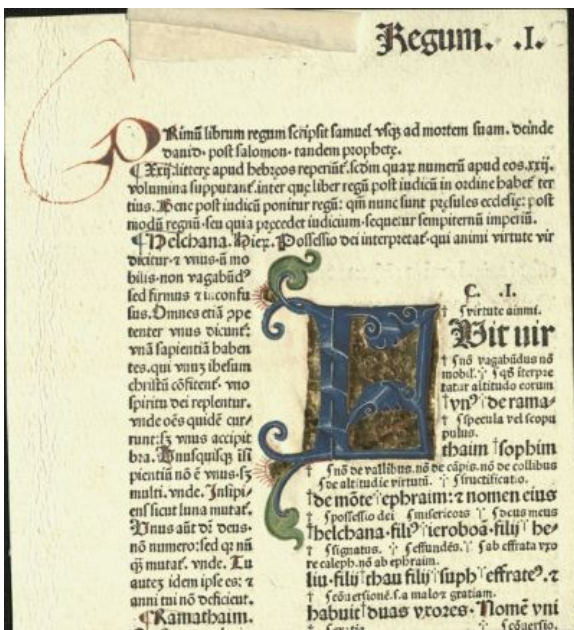 Regum. .I.
PRimū librum regum scripsit samuel vsqȝ ad mortem suam. deinde
dauid. post salomon. tandem prophetę.
¶ Xxij. litterę apud hebręos reperiūt. scdm quaꝝ numerū apud eos .xxij.
volumina supputant. inter quę liber regū post iudicū in ordine habet ter
tius. Bene post iudicū ponitur regū: qm nunc sunt pręsules ecclesię: post
modū regnū. seu quia pręcedet iudicium. sequetur sempiternū imperiū.
¶ Helchana. Hier. Possessio dei interpretat. qui animi virtute vir
dicitur. ⁊ vnus. ñ mo
bilis. non vagabūdꝰ
sed firmus ⁊ incōfu
sus. Omnes etiā ppe
tenter vnus dicunt:
vnā sapientiā haben
tes. qui vnuȝ ihesum
christū cōfitent. vno
spiritu dei replentur.
vnde oēs quidē cur/
runt: sȝ vnus accipit
bra. Vnusquisqȝ isi
pientiū nō ē vnus. sȝ
multi. vnde. Insipi/
ens sicut luna mutat.
Vnus aūt dī deus.
nō numero: sed qꝛ nū
qȝ mutat. vnde. Tu
auteȝ idem ipse es: ⁊
anni tui nō deficient.
¶ Ramathaim.
C. .I.
† ſ virtute animi.
FVit vir
† ſ nō vagabūdus nō
mobil. ∵ ſ qȝ iterpre
tatur altitudo eorum
†vnꝰ ∵de rama-
† ſ specula vel scopu
pulus.
thaim †sophim
† ſ nō de vallibus. nō de cāpis. nō de collibus
ſ de altitudie virtutū. ∵ ſ fructificatio.
†de mōte ∵ephraim: ⁊ nomen eius
† ſ possessio dei ∵ ſ misericors † ſ deus meus
†helchana. filiꝰ ∵ieroboā. filij †he/
† ſ signatus. ∵ ſ effundēs. † ſ ab effrata vxo
re caleph. nō ab ephraim.
liu. filij †thau filij ∵suph †effrateꝰ. ⁊
† ſ cōuersionē. ſ. a malo ⁊ gratiam.
habuit †duas vxores. Nomē vni
† ſ gratia. ∵ ſ cōuersio.